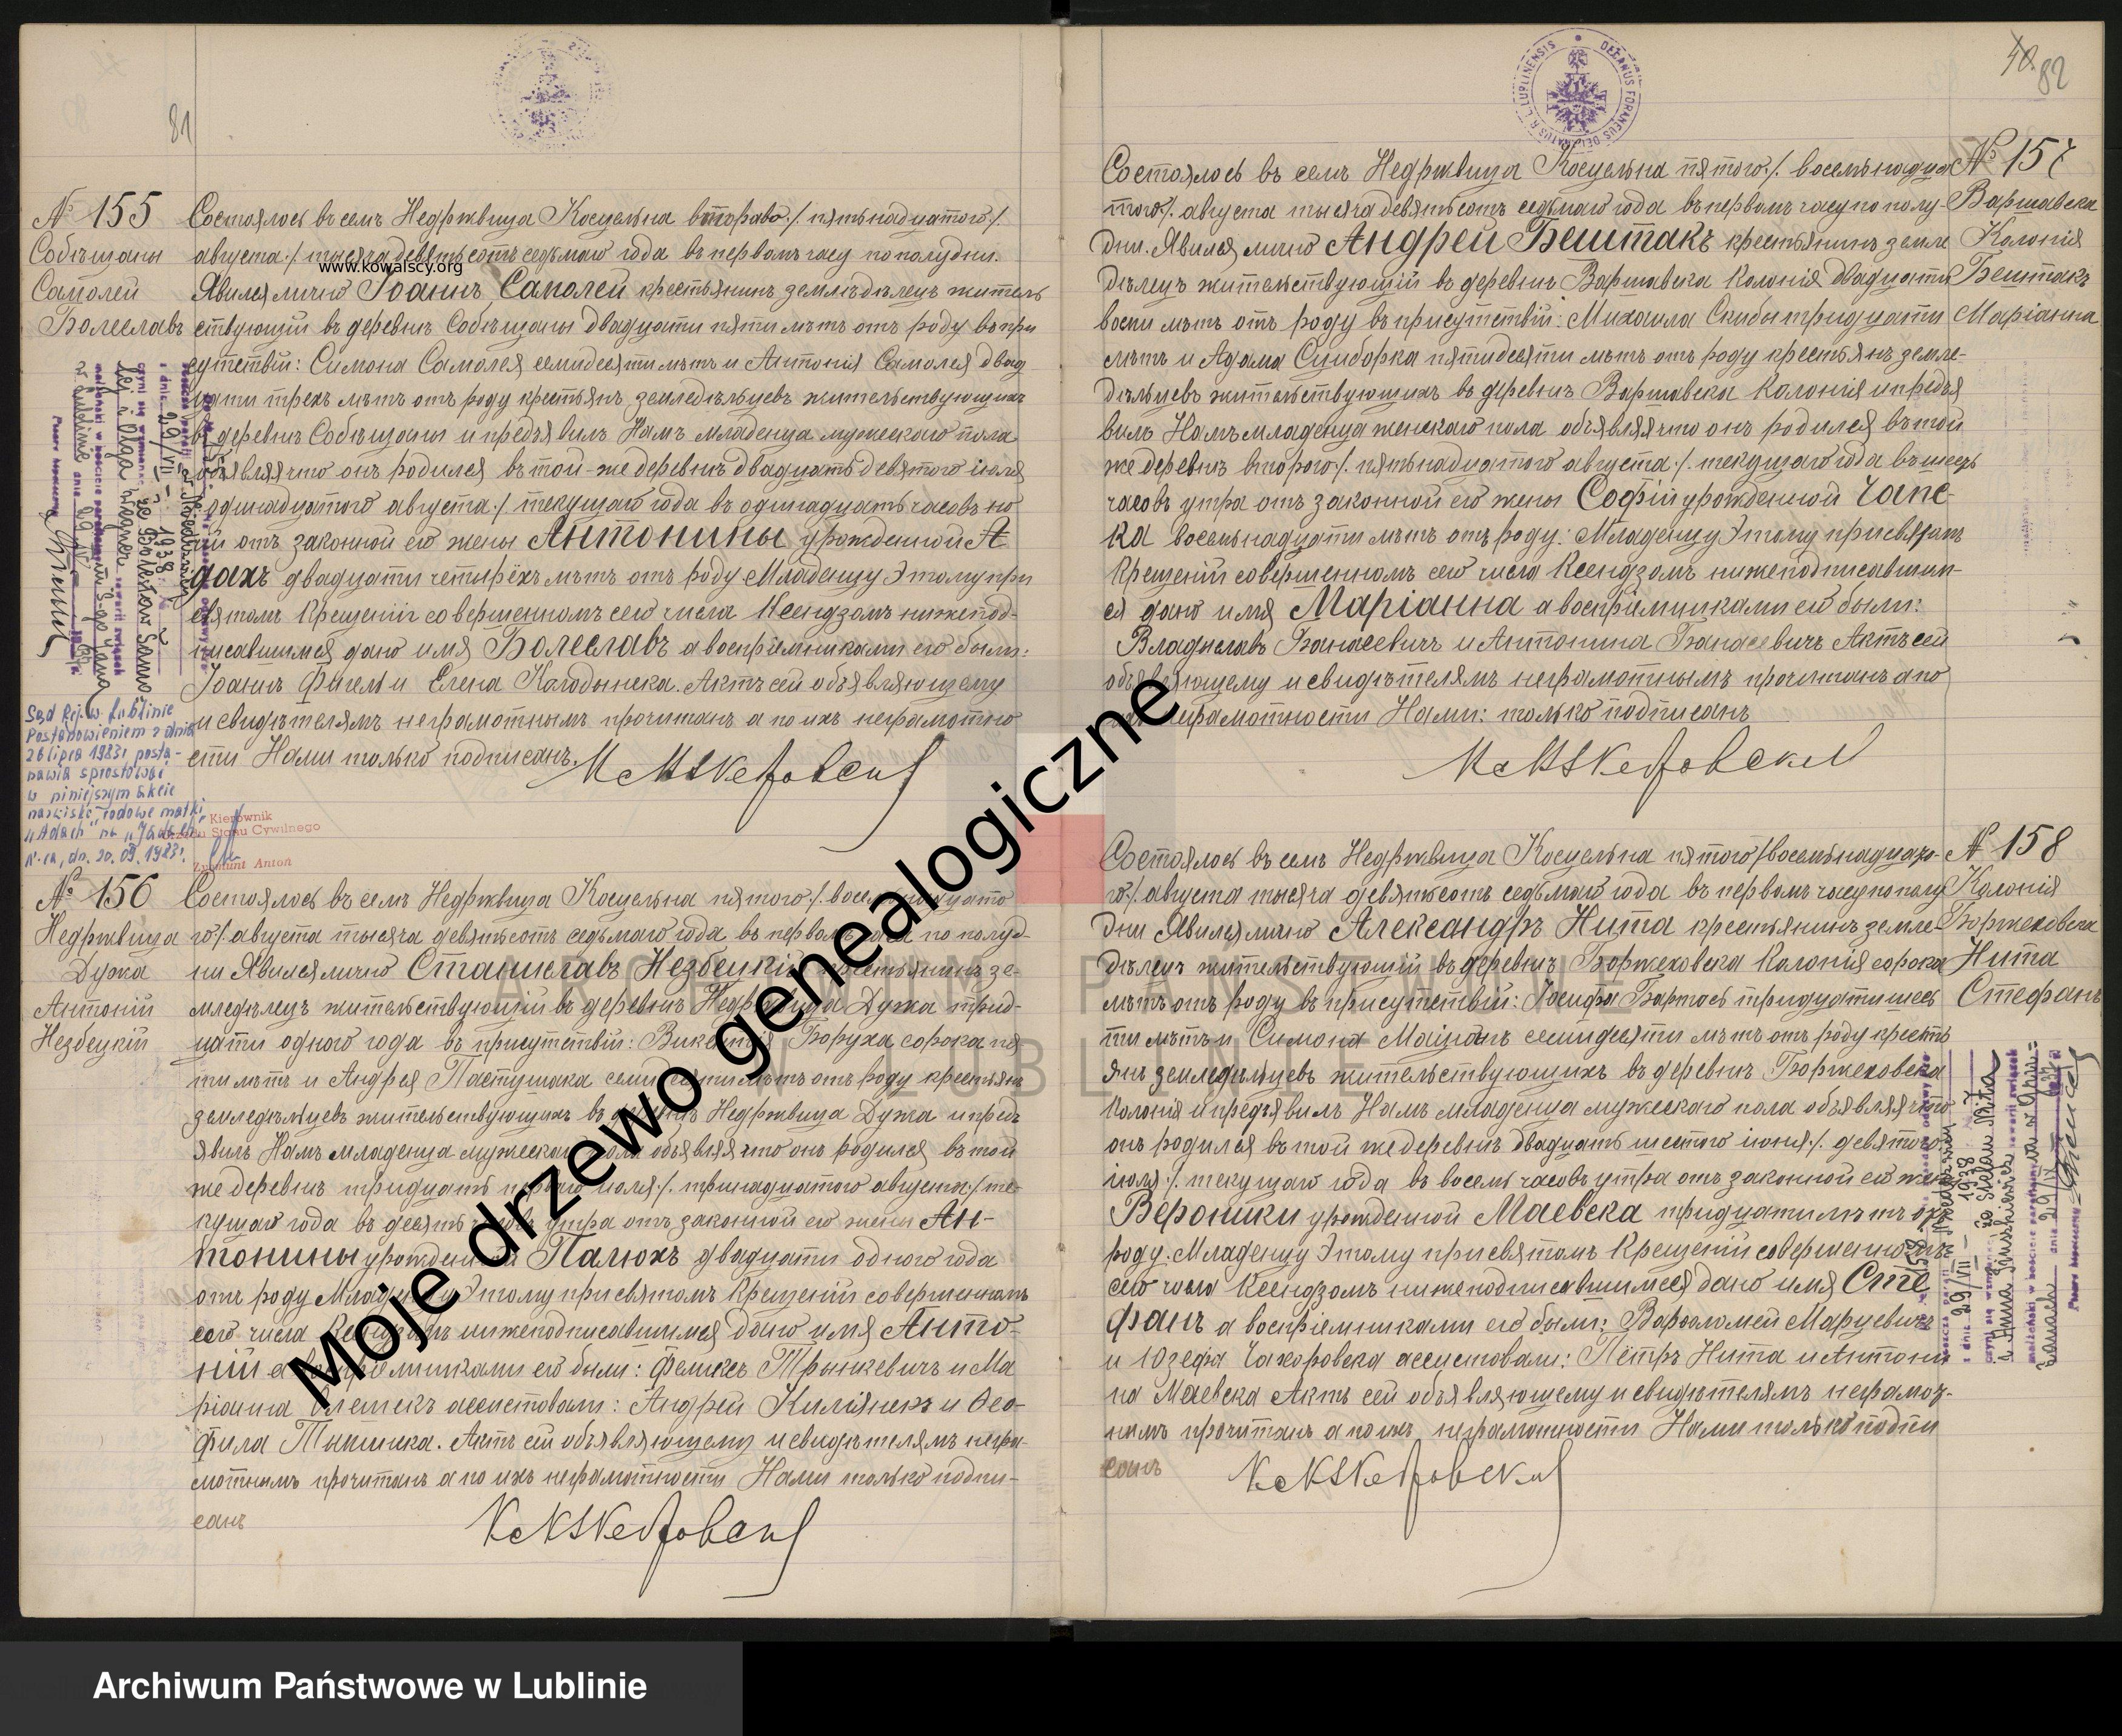 81
№ 155
Собѣщаны
Самолей
Болеславъ
Состоялось въ селѣ Недржвица Косцельна втораво /. пятьнадцатого /.
августа ./ тысяча девятьсотъ седьмаго года въ первомъ часу пополудни.
www.kowalscy.org
Явился лично Іоаннъ Самолей крестьянинъ земледѣлецъ житель
ствующій въ деревнѣ Собѣщаны двадцати пяти лѣтъ отъ роду въ при
сутствіи: Симона Самолея семидесяти лѣтъ и Антонія Самолея двад
цати трехъ лѣтъ отъ роду крестьянъ земледѣльцевъ жительствующихъ
въ деревнѣ Собѣщаны и предъявилъ Намъ младенца мужескаго пола
объявляя что онъ родился въ той-же деревнѣ двадцать девятого іюля
одинадцатого августа ./ текущаго года въ одинадцать часовъ но
чи отъ законной его жены Антонины урожденной А
дахъ двадцати четырёхъ лѣтъ отъ роду Младенцу Этому при
святомъ Крещеніи совершенномъ сего числа Ксендзомъ нижепод-
писавшимся дано имя Болеславъ а воспріемниками его были:
Іоаннъ Фигель и Елена Колодынска. Актъ сей объявляющему
и свидѣтелямъ неграмотнымъ прочитанъ а по ихъ неграмотно
сти Нами только подписанъ.
Sąd Rej. w Lublinie
Postanowieniem z dnia
26 lipca 1983r posta-
nawia sprostować
w niniejszym akcie
nazwisko rodowe matki
"Adach" na
dn. 20.09.1983r.
Kierownik
Urzędu Stanu Cywilnego
Zygmunt Antoń
№ 156
Недржвица
Дужа
Антоній
Незбецкій
Состоялось въ селѣ Недржвица Косцельна пятого /. восемнадцато
го /. августа тысяча девятьсотъ седьмаго года въ первомъ часа по полуд-
ни Явился лично Станиславъ Незбецкій крестьянинъ зе-
мледѣлецъ жительствующій въ деревнѣ Недржвица Дужа трид-
цати одного года въ присутствіи: Викентія Боруха сорока пя
ти лѣтъ и Андрея Пастушака семидесяти лѣтъ отъ роду крестьянъ
земледѣльцевъ жительствующихъ въ деревнѣ Недржвица Дужа и предъ
явилъ Намъ младенца мужескаго пола объявляя что онъ родился въ той
же деревнѣ тридцать перваго іюля /. тринадцатого августа ./ те-
кущаго года въ десять часовъ утра отъ законной его жены Ан-
тонины урожденной Палюхъ двадцати одного года
отъ роду Младенцу Этому при святомъ Крещеніи совершенномъ
сего числа Ксендзомъ нижеподписавшимся дано имя Анто-
ній а воспріемниками его были: Феликсъ Трынкевичъ и Ма
ріанна Олешекъ ассистовали: Андрей Килиянекъ и Ѳео-
фила Тыкинска. Актъ сей объявляющему и свидѣтелямъ негра-
мотнымъ прочитанъ а по ихъ неграмотности Нами только подпи-
санъ
40.
82
DECANUS FORANEUS
LUPLINENSIS
№ 157
Варшавска
Колонія
Бештакъ
Маріанна
Состоялось въ селѣ Недржвица Косцельна пятого /. восемьнадца
того /. августа тысяча девятьсотъ седьмаго года въ первомъ часу по полу-
дни. Явился лично Андрей Бештакъ крестьянинъ земле
дѣлецъ жительствующій въ деревнѣ Варшавска Колонія двадцати
восми лѣтъ отъ роду въ присутствіи: Михаила Скибы тридцати
лѣтъ и Адама Сциборка пятидесяти лѣтъ отъ роду крестьянъ земле-
дѣльцевъ жительствующихъ въ деревнѣ Варшавска Колонія и предъя
вилъ Намъ младенца женскаго пола объявляя что онъ родился въ той
же деревнѣ второго /. пятьнадцатого августа ./. текущаго года въ шесть
часовъ утра отъ законной его жены Софіи урожденной Чапс-
ка восемьнадцати лѣтъ отъ роду: Младенцу Этому при святомъ
Крещеніи совершенномъ сего числа Ксендзомъ нижеподписавшим-
ся дано имя Маріанна а воспріемниками его были:
Владиславъ Банасевичъ и Антонина Банасевичъ Актъ сей
объявляющему и свидѣтелямъ неграмотнымъ прочитанъ а по
ихъ неграмотности Нами: только подписанъ
№ 158
Колонія
Боржеховска
Нита
Стефанъ
Состоялось въ селѣ Недржвица Косцельна пятого /. восемьнадцато-
го ./ августа тысяча девятьсотъ седьмаго года въ первомъ часу по полу
дни Явился лично Александръ Нита крестьянинъ земле-
дѣлецъ жительствующій въ деревнѣ Боржеховска Колонія сорока
лѣтъ отъ роду въ присутствіи: Іосифа Бартось тридцати шес
ти лѣтъ и Симона Моцонь семидесяти лѣтъ отъ роду кресть
янъ земледѣльцевъ жительствующихъ въ деревнѣ Боржеховска
Колонія и предъявилъ Намъ младенца мужескаго пола объявляя что
онъ родился въ той же деревнѣ двадцать шестого іюня /. девятого
іюля /. текущаго года въ восемь часовъ утра отъ законной его жены
Вероники урожденной Маевска тридцати лѣтъ отъ
роду. Младенцу Этому при святомъ Крещеніи совершенномъ
сего числа Ксендзомъ нижеподписавшимся дано имя Сте
фанъ а воспріемниками его были: Варѳоломей Марцевичъ
и Юзефа Чахоровска ассистовали: Пётръ Нита и Антони
на Маевска Актъ сей объявляющему и свидѣтелямъ неграмот-
нымъ прочитанъ а по ихъ неграмотности Нами только подпи
санъ
Moje drzewo genealogiczne
ARCHIWUM PAŃSTWOWE
W LUBLINIE
Archiwum Państwowe w Lublinie